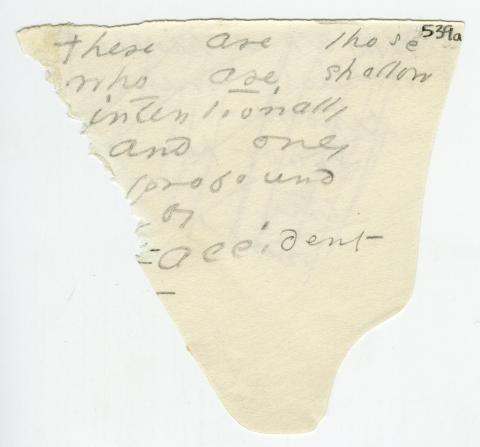 539a
there are those
who are shallow
intentionally
and only
profound
by
accident